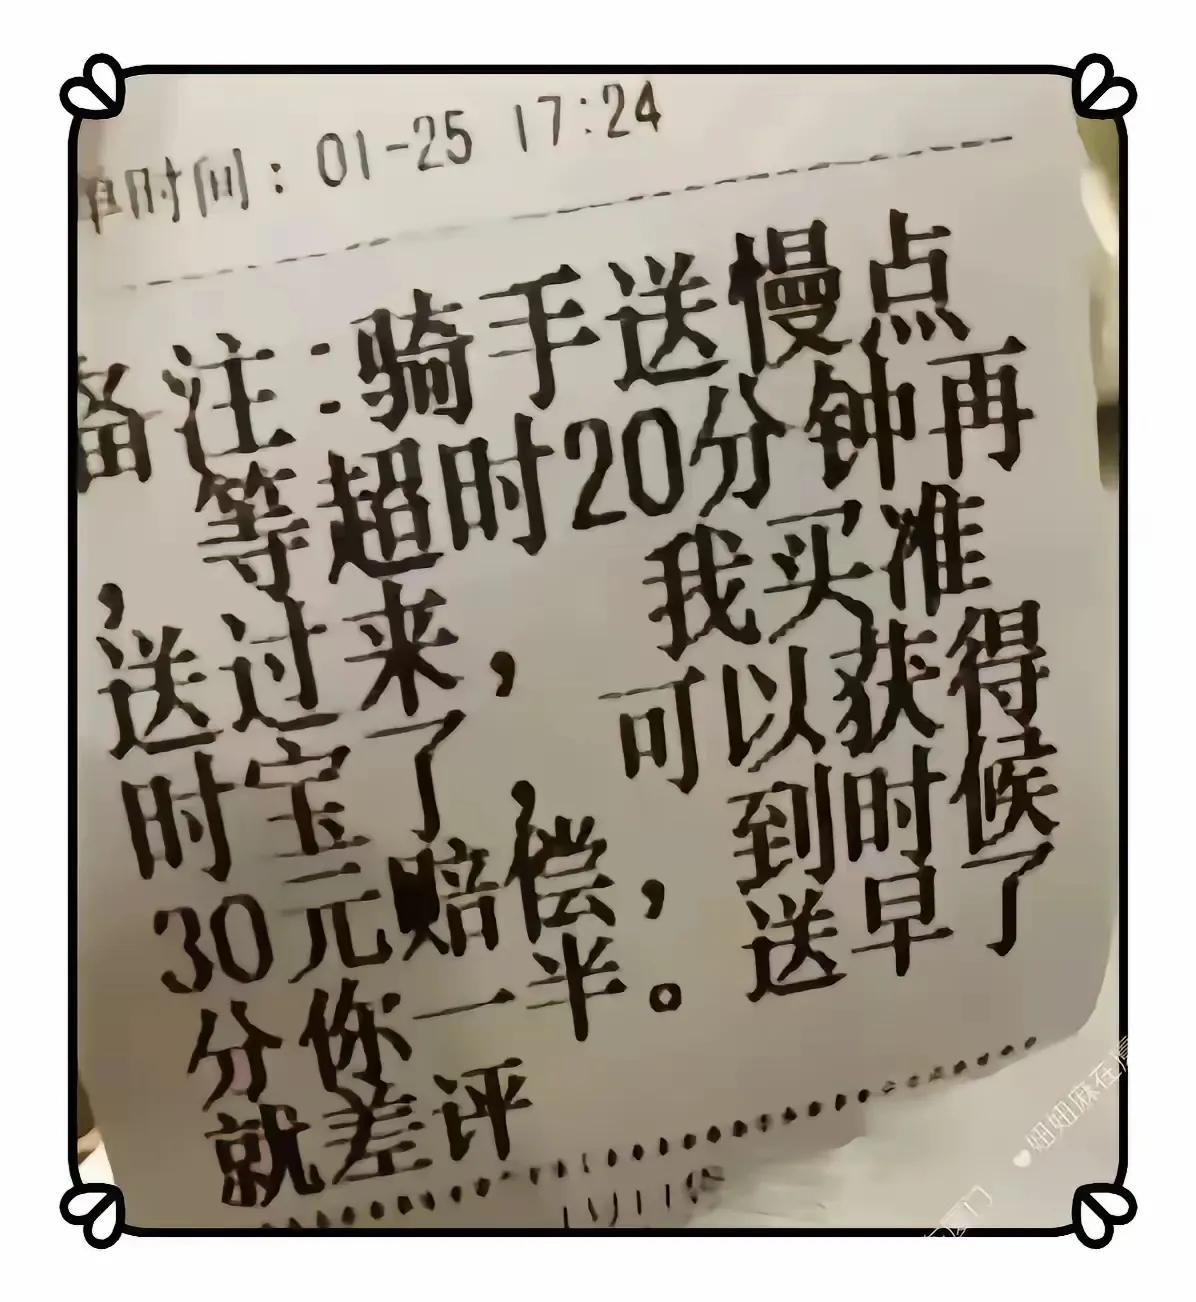 单时间：01-25 17:24
备注:骑手送慢点
，等超时20分钟再
送过来，我买准
时宝了，可以获得
30元赔偿，到时候
分你一半。送早了
就差评
妞妞麻在厦
厦门